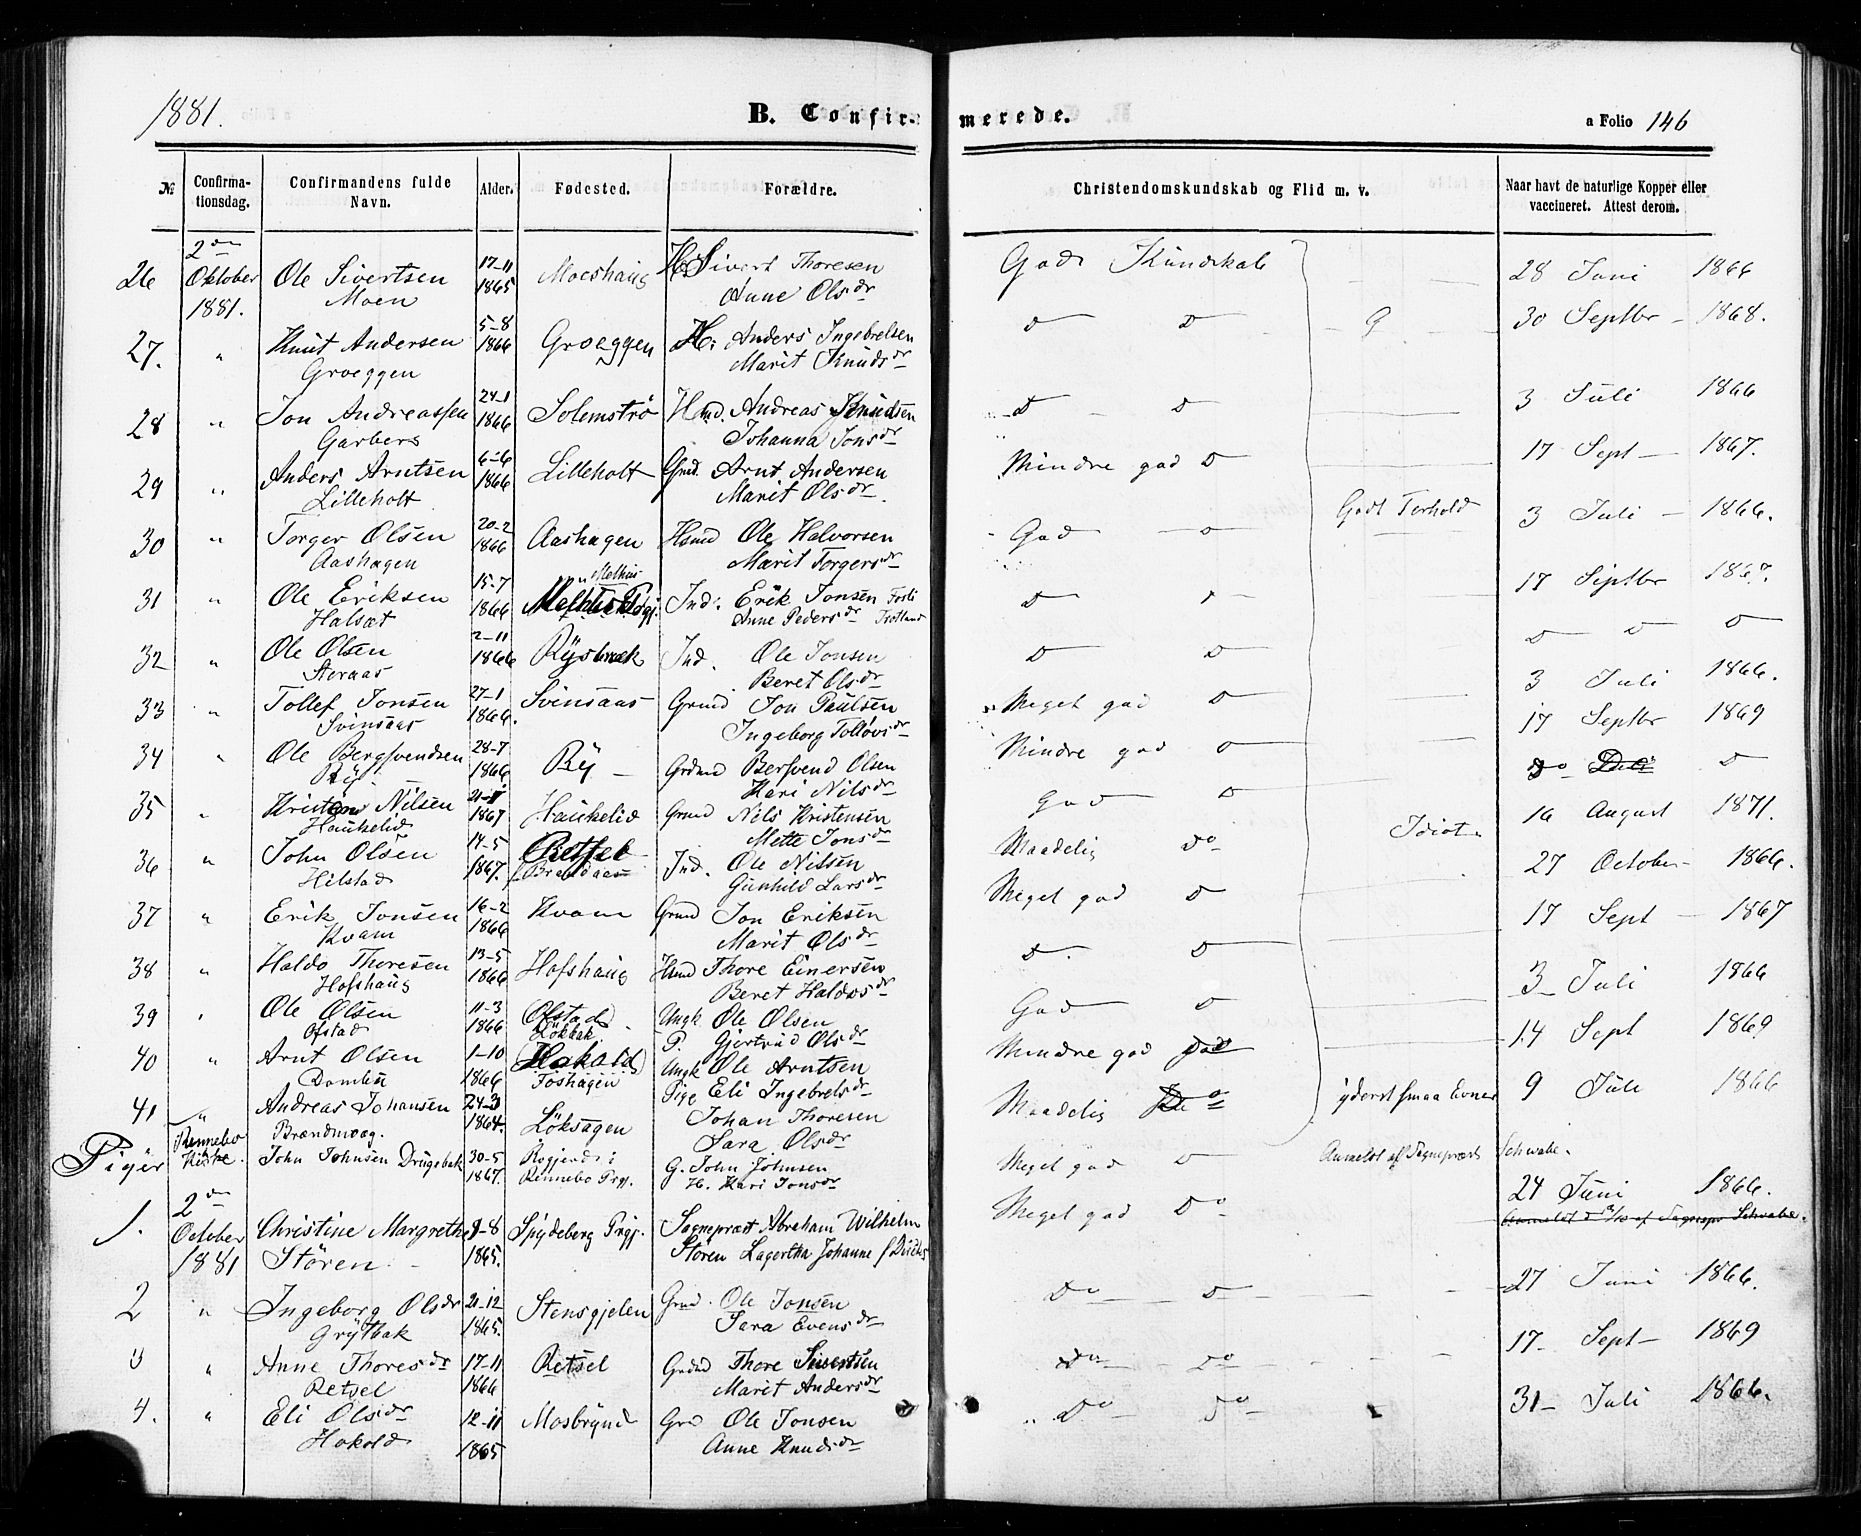 1881. B. Confirmerede. a Folio 146
№ Confirmationsdag. Confirmandens fulde Navn. Alder. Fødested. Forældre. Christendomskundskab og Flid m. v. Naar havt de naturlige Kopper eller vaccineret. Attest derom.
2den
26 Oktober Ole Sivertsen 17-11 Moeshaug Sivert Thoresen God Kundskab 28 Juni 1866
1881. Moen 1865 Anne Olsdr
27. " Knut Andersen 5-8 Groeggen Anders Ingebrelsen D D 30 Septbr 1868.
Groeggen 1866 Marit Knudsdr
28 " Jon Andreassen 24-1 Solemstrø Hmd. Andreas D D 3 Juli 1866
Garberg 1866 Johanna Jonsdr
29 " Anders Arntsen 6-6 Lilleholt Gmd. Arnt Andersen Mindre god D 17 Sept 1867.
Lilleholt 1866 Marit Olsdr.
30 " Torger Olsen 20-2 Aashagen Hsmd Ole Halvorsen God D Godt Forhold 3 Juli 1866.
Aashagen 1866 Marit Torgersdr
31 " Ole Eriksen 15-7 Melhus Ind. Erik Jonsen D 17 Septbr 1867.
Halsæt 1866 Anne Pedersdr
32 " Ole Olsen 2-11 Ind. Ole Jonsen D D D D D
1866 Beret Olsdr
33 " Tollef Jonsen 27-1 Svinsaas Grund Jon Paulsen Meget god D 3 Juli 1866.
Svinsaas 1866. Ingeborg
34 " Ole Bergsvendsen 28-7 Ry Bersvend Olsen Mindre god D 17 Septbr 1869
Ry 1866 Kari Nilsdr
35 " Nilsen Haukelid Grund Nils Kristensen God D
Haukelid 1867 Mette Jonsdr
36 " John Olsen 14-5 Retsel Ind. Ole Nilsen Maadelig Do Idiot 16 August 1871.
Hilstad 1867. Gunhild Larsdr
37 " Erik Jonsen 16-2 Kvam Grund Jon Eriksen Meget god D 27 October 1866.
Kvam 1866 Marit Olsdr
38 " Haldo Thoresen 13-5 Hofshaug Hsmd Thore Einersen D. D 17 Sept 1867
Hofshaug 1866 Beret Haldosdr
39 " Ole Olsen 11-3 Ofstad Ungk Ole Olsen God D 3 Juli 1866
Ofstad 1866 P. Gjertrud Olsdr
40 " Arnt Olsen 1-10 Ungk Ole Arntsen Mindre god 14 Sept 1869
1866 Foshagen Pige Eli Ingebrelsdr
41 " Andreas Johansen Løksagen Johan Thoresen Maadelig yderst smaa Evner 9 Juli 1866
Brændmoeg. 1864. Sara Olsdr
Rennebo Kirke. John Johnsen Drugsbak 30-5 G. John Johnsen Meget god D Anmeldt af Sognepræst Schwabe.
1867. Rennebo Prgj. H. Kari Jonsdr
Piger
2den
1. October Christine Margrethe 9-8 Spydeberg Prgj. Sognepræst Abraham Wilhelm Meget god Do 24 Juni 1866.
1881 Støren 1865. Støren Lagertha Johanne f Anmeldt af Sognepr Schwabe.
2 " Ingeborg Olsdr 21-12 Stensgjelen Grd. Ole Jonsen Do D 27 Juni 1866.
Grytbak 1865. Sara Evensdr
3 " Anne Thoresdr 17-11 Retsel Grdmd Thore Sivertsen Do Do 17 Sept 1869
Retsel 1866 Marit Andersdr
4. " Eli Olsdr 12-11 Mosbrynd Grd Ole Jonsen Do Do 31 Juli 1866.
Hokold 1865 Anne Knudsdr